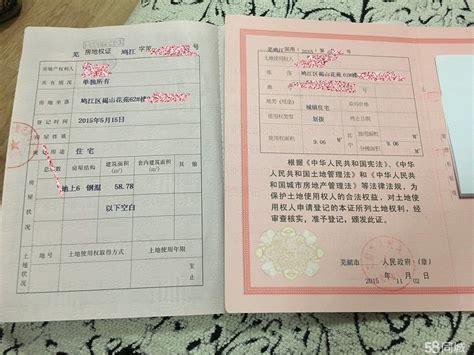 芜 房地权证 鸠江 字第 号
房地产权利人
共有情况 单独所有
房地坐落 鸠江区褐山花苑62#楼
登记时间 2015年5月15日
房屋性质
规划用途 住宅
房屋状况
总层数 房屋结构 建筑面积(㎡) 套内建筑面积(㎡) 其他
地上6 钢混 58.78
以下空白
土地状况
地号 土地使用权取得方式 土地使用年限
芜鸠江国用(2015)第 号
土地使用权人
座落 鸠江区褐山花苑62#楼
地号
地类(用途) 城镇住宅
使用权类型 划拨
使用权面积 9.06 M²
9.06 M²
分摊面积 M²
根据《中华人民共和国宪法》、《中华
人民共和国土地管理法》和《中华人民
共和国城市房地产管理法》等法律法规,为
保护土地使用权人的合法权益,对土地使
用权人申请登记的本证所列土地权利,经
审查核实,准予登记,颁发此证。
芜湖市 人民政府(章)
2015 年 11 月 02 日
58同城